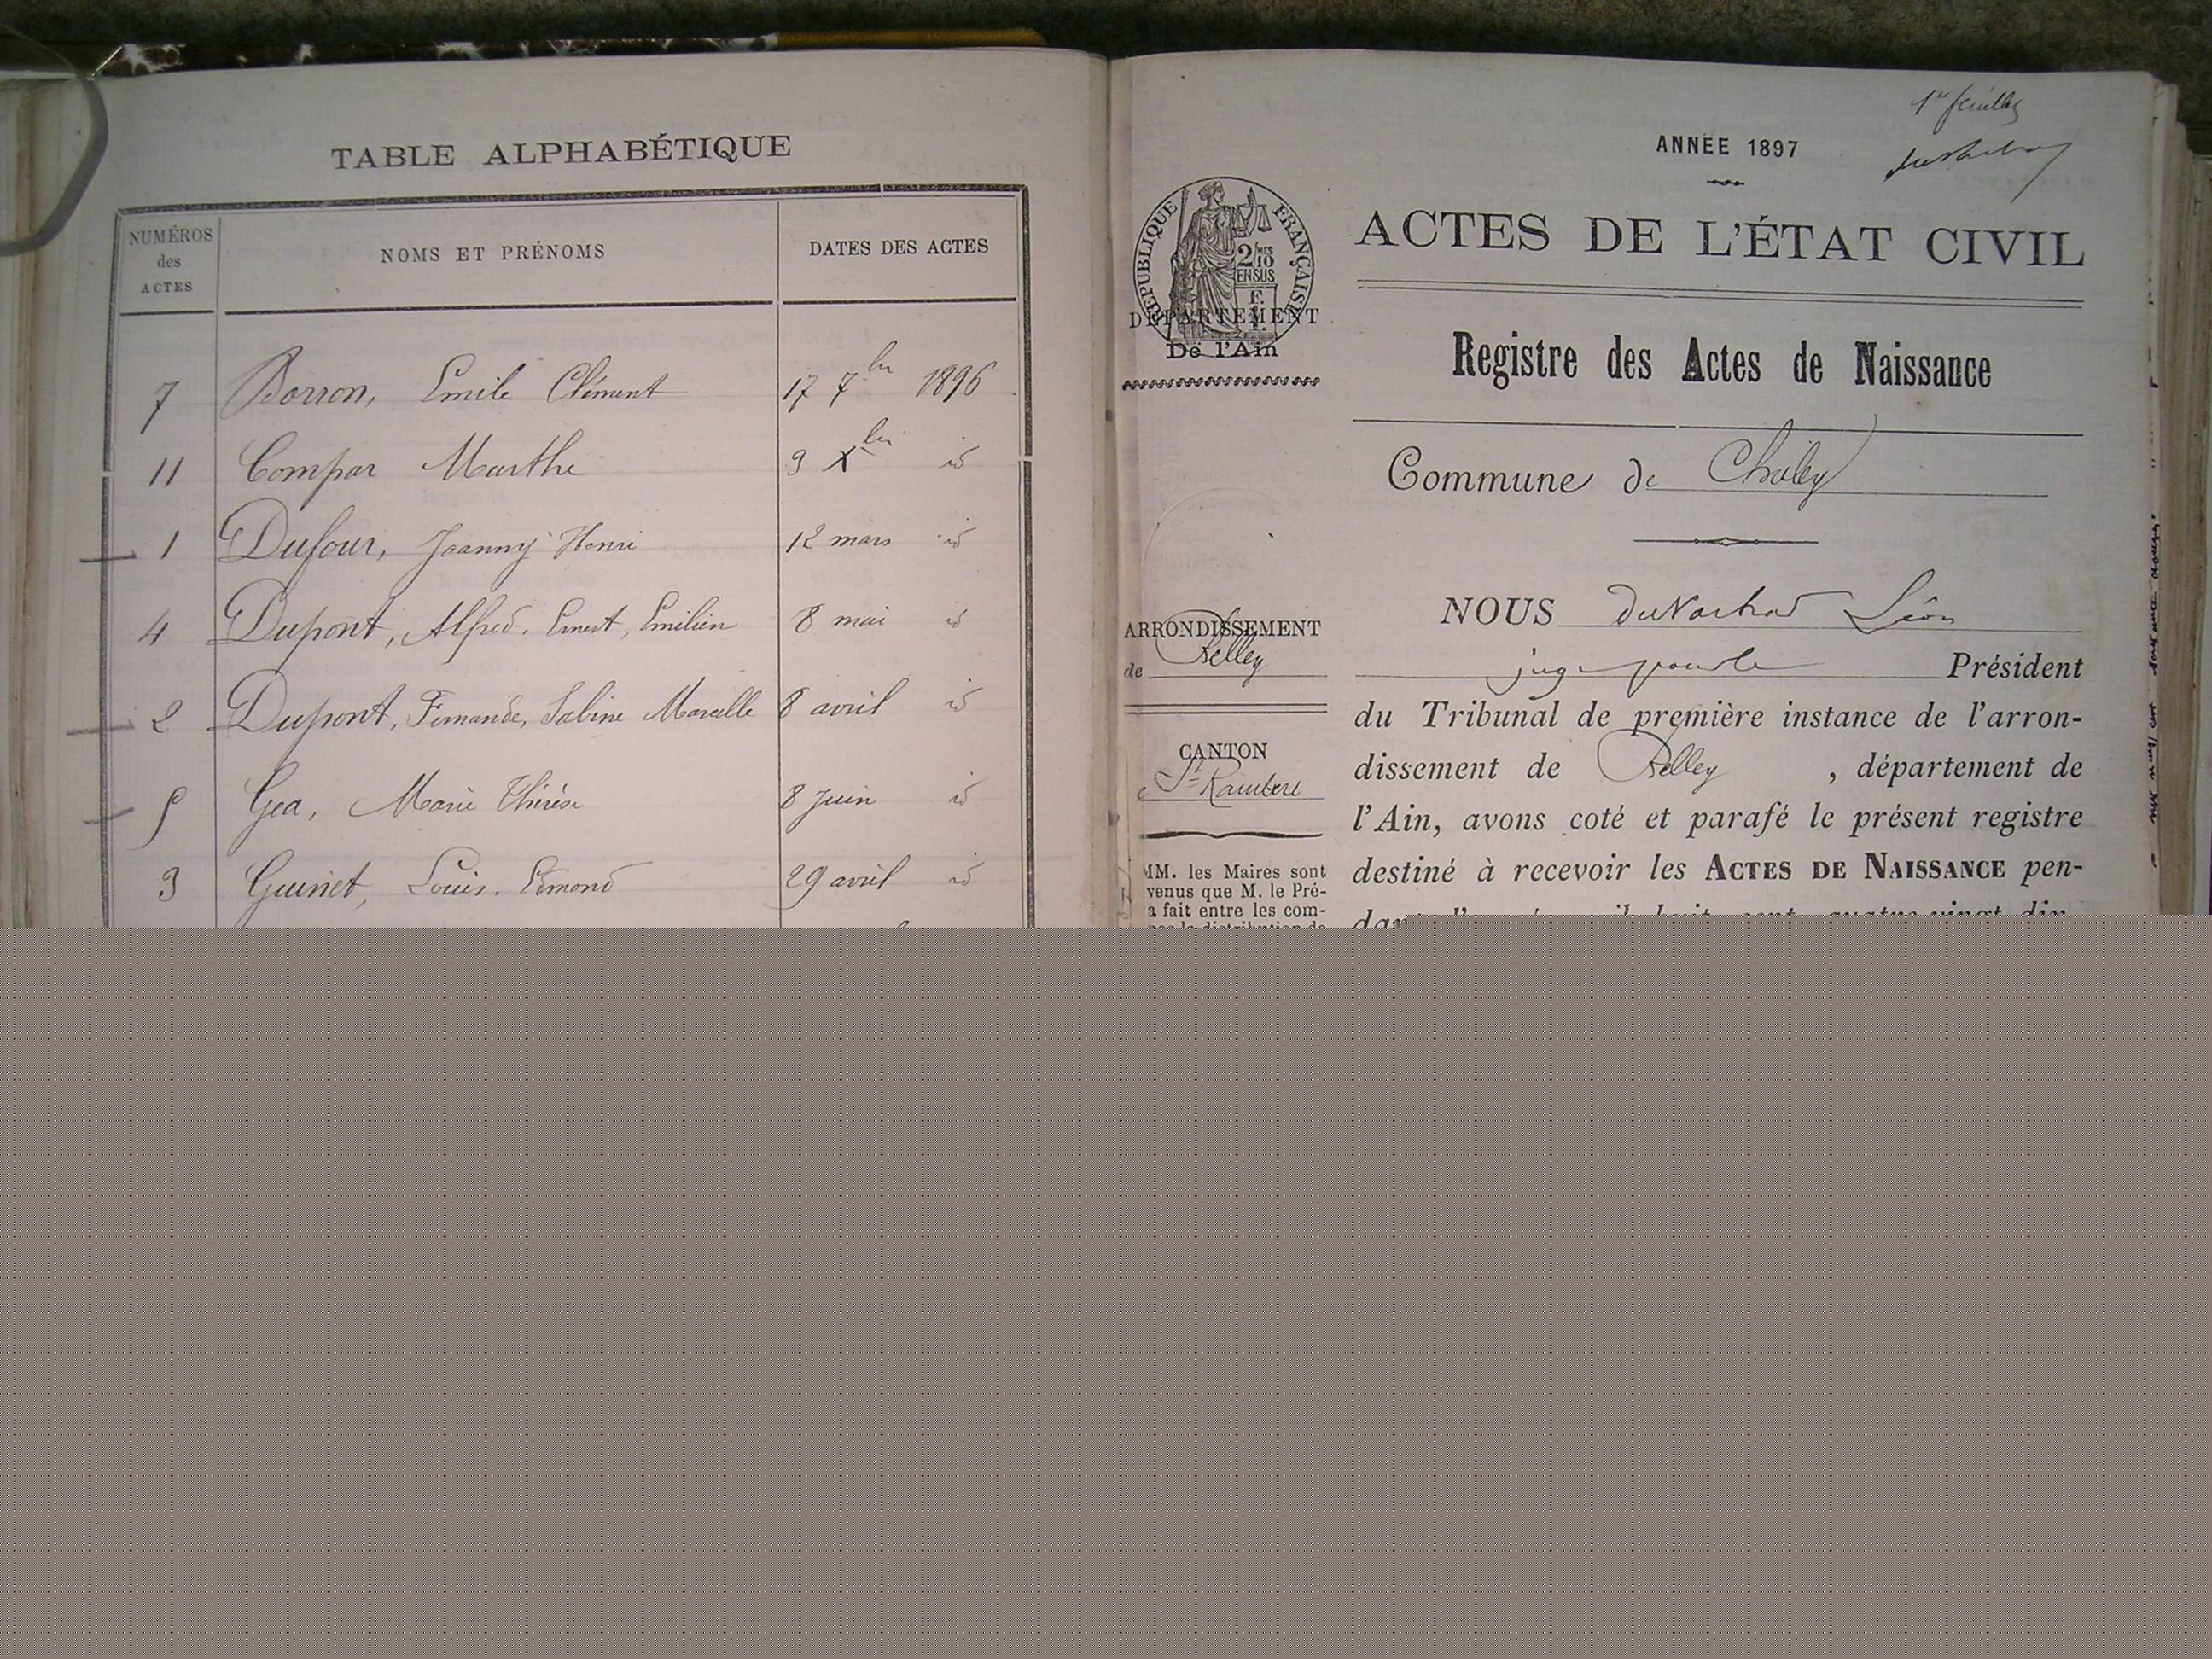 TABLE ALPHABÉTIQUE
NUMÉROS des ACTES
NOMS ET PRÉNOMS
DATES DES ACTES
7 Borron, Emile Clément 17 7bre 1896
11 Compar Marthe 9 Xbre id
1 Dufour, Joanny Henri 12 mars id
4 Dupont, Alfred, Ernest, Emilien 8 mai id
2 Dupont, Fernande, Sabine Marcelle 8 avril id
5 Gea, Marie Thérèse 8 Juin id
3 Guinet, Louis, Edmond 29 avril id
1er feuillet
ANNÉE 1897
RÉPUBLIQUE FRANÇAISE
2/10
EN SUS
DÉPARTEMENT
De l'Ain
ACTES DE L'ÉTAT CIVIL
Registre des Actes de Naissance
Commune de Chaley
ARRONDISSEMENT
de Belley
CANTON
St Rambert
MM. les Maires sont
venus que M. le Pré-
a fait entre les com-
NOUS Léon
juge pour le Président
du Tribunal de première instance de l'arron-
dissement de Belley, département de
l'Ain, avons coté et parafé le présent registre
destiné à recevoir les ACTES DE NAISSANCE pen-